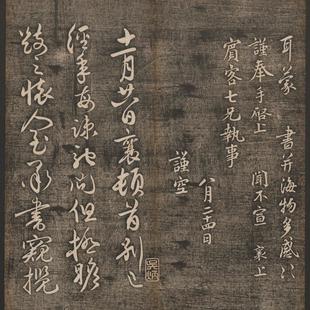 耳蒙 書并海物多感
謹奉手啓上 聞不宣 襄上
賓客七兄執事
八月二十四日
謹空
十一月廿日襄頓首別已
經年每疎馳問但極瞻
之懷人至承書窺攬